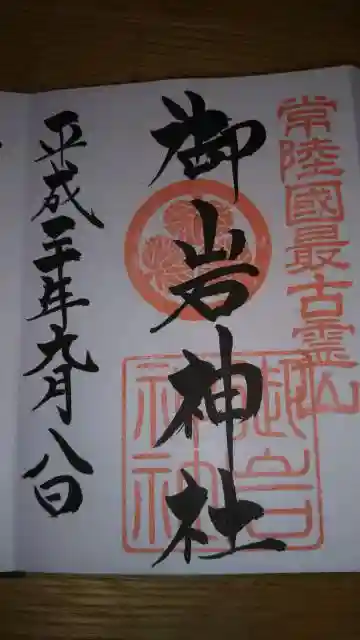 常陸國最古霊山
御岩神社
平成二十年九月八日